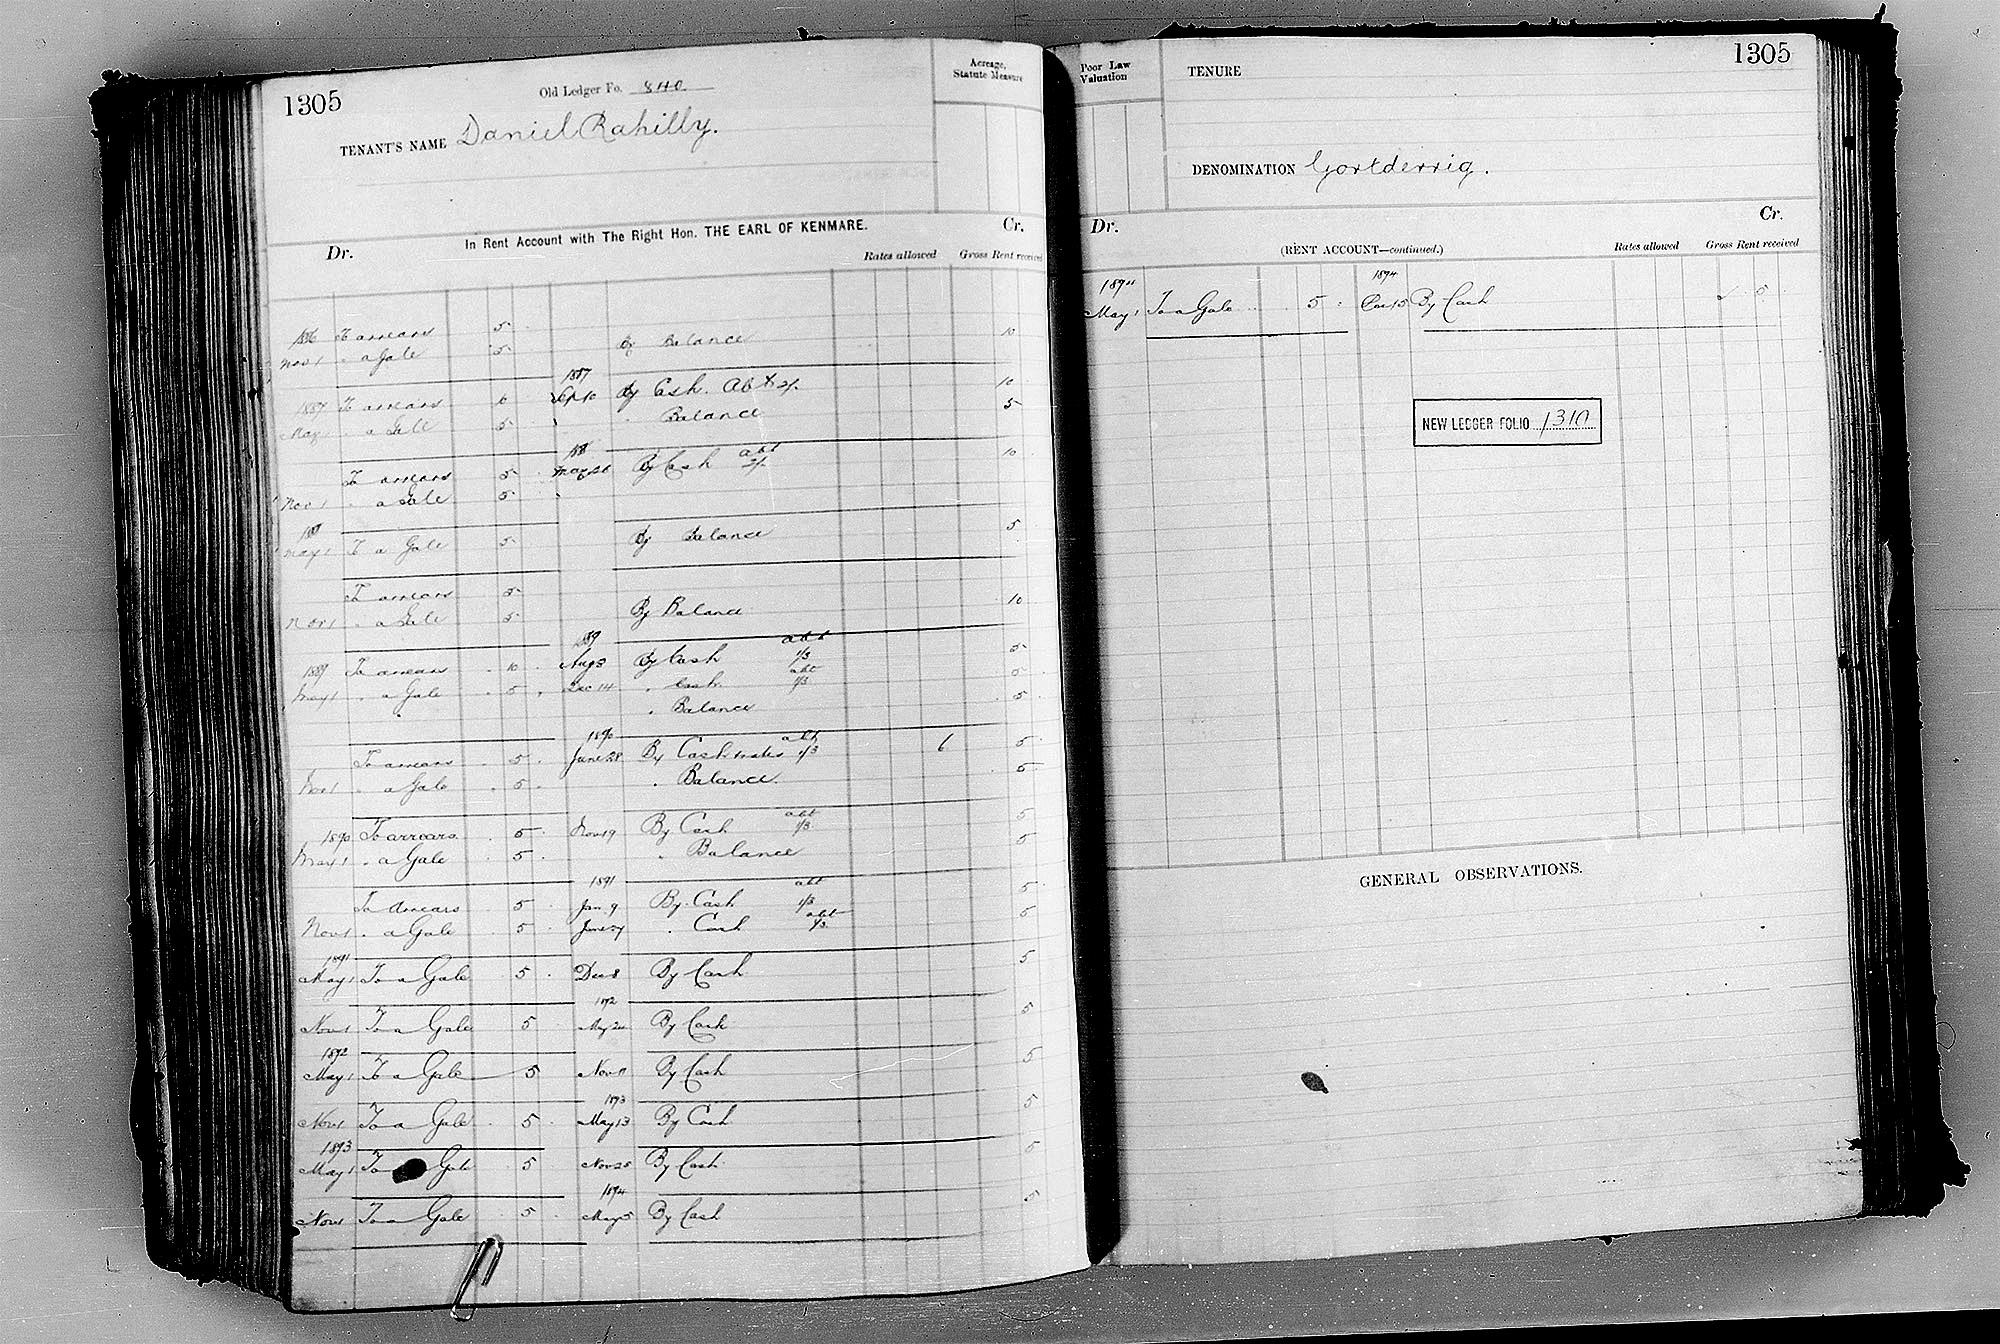 1305
Old Ledger Fo. 840
TENANT'S NAME Daniel Rahilly.
Acreage,
Statute Measure
Dr. In Rent Account with The Right Hon. THE EARL OF KENMARE. Cr.
Rates allowed Gross Rent received
1886 To arrears 5
Nov 1 " a Gale 5 By Balance 10
1887
1887 To arrears 10 Sep 10 By Cash. Abt 2/. 10
May 1 " a Gale 5 " Balance 5
188 abt
To arrears 5 May 26 By Cash 2/. 10
Nov 1 " a Gale 5
188
May 1 To a Gale 5 By Balance 5
To arrears 5
Nov 1 " a Gale 5 By Balance 10
1889 abt
1889 To arrears 10 Aug 3 By Cash 1/3 5
abt
May 1 " a Gale 5 Dec 14 " Cash 1/3 5
" Balance 5
1890 abt
To arrears 5 June 28 By Cash & rates 1/3 6 5
Nov 1 " a Gale 5 " Balance 5
abt
1890 To arrears 5 Nov 19 By Cash 1/3 5
May 1 " a Gale 5 " Balance 5
1891 abt
To arrears 5 Jan 9 By Cash 1/3 5
abt
Nov 1 " a Gale 5 June 27 " Cash 1/3 5
1891
May 1 To a Gale 5 Dec 8 By Cash 5
1892
Nov 1 To a Gale 5 May 20 By Cash 5
1892
May 1 To a Gale 5 Nov 11 By Cash 5
1893
Nov 1 To a Gale 5 May 13 By Cash 5
1893
May 1 To a Gale 5 Nov 25 By Cash 5
1894
Nov 1 To a Gale 5 May 5 By Cash 5
Poor Law
Valuation
TENURE
1305
DENOMINATION Gortderrig.
Dr. Cr.
(RENT ACCOUNT—continued.) Rates allowed Gross Rent received
1894 1894
May 1 To a Gale 5 15 By Cash 5
NEW LEDGER FOLIO 1310
GENERAL OBSERVATIONS.